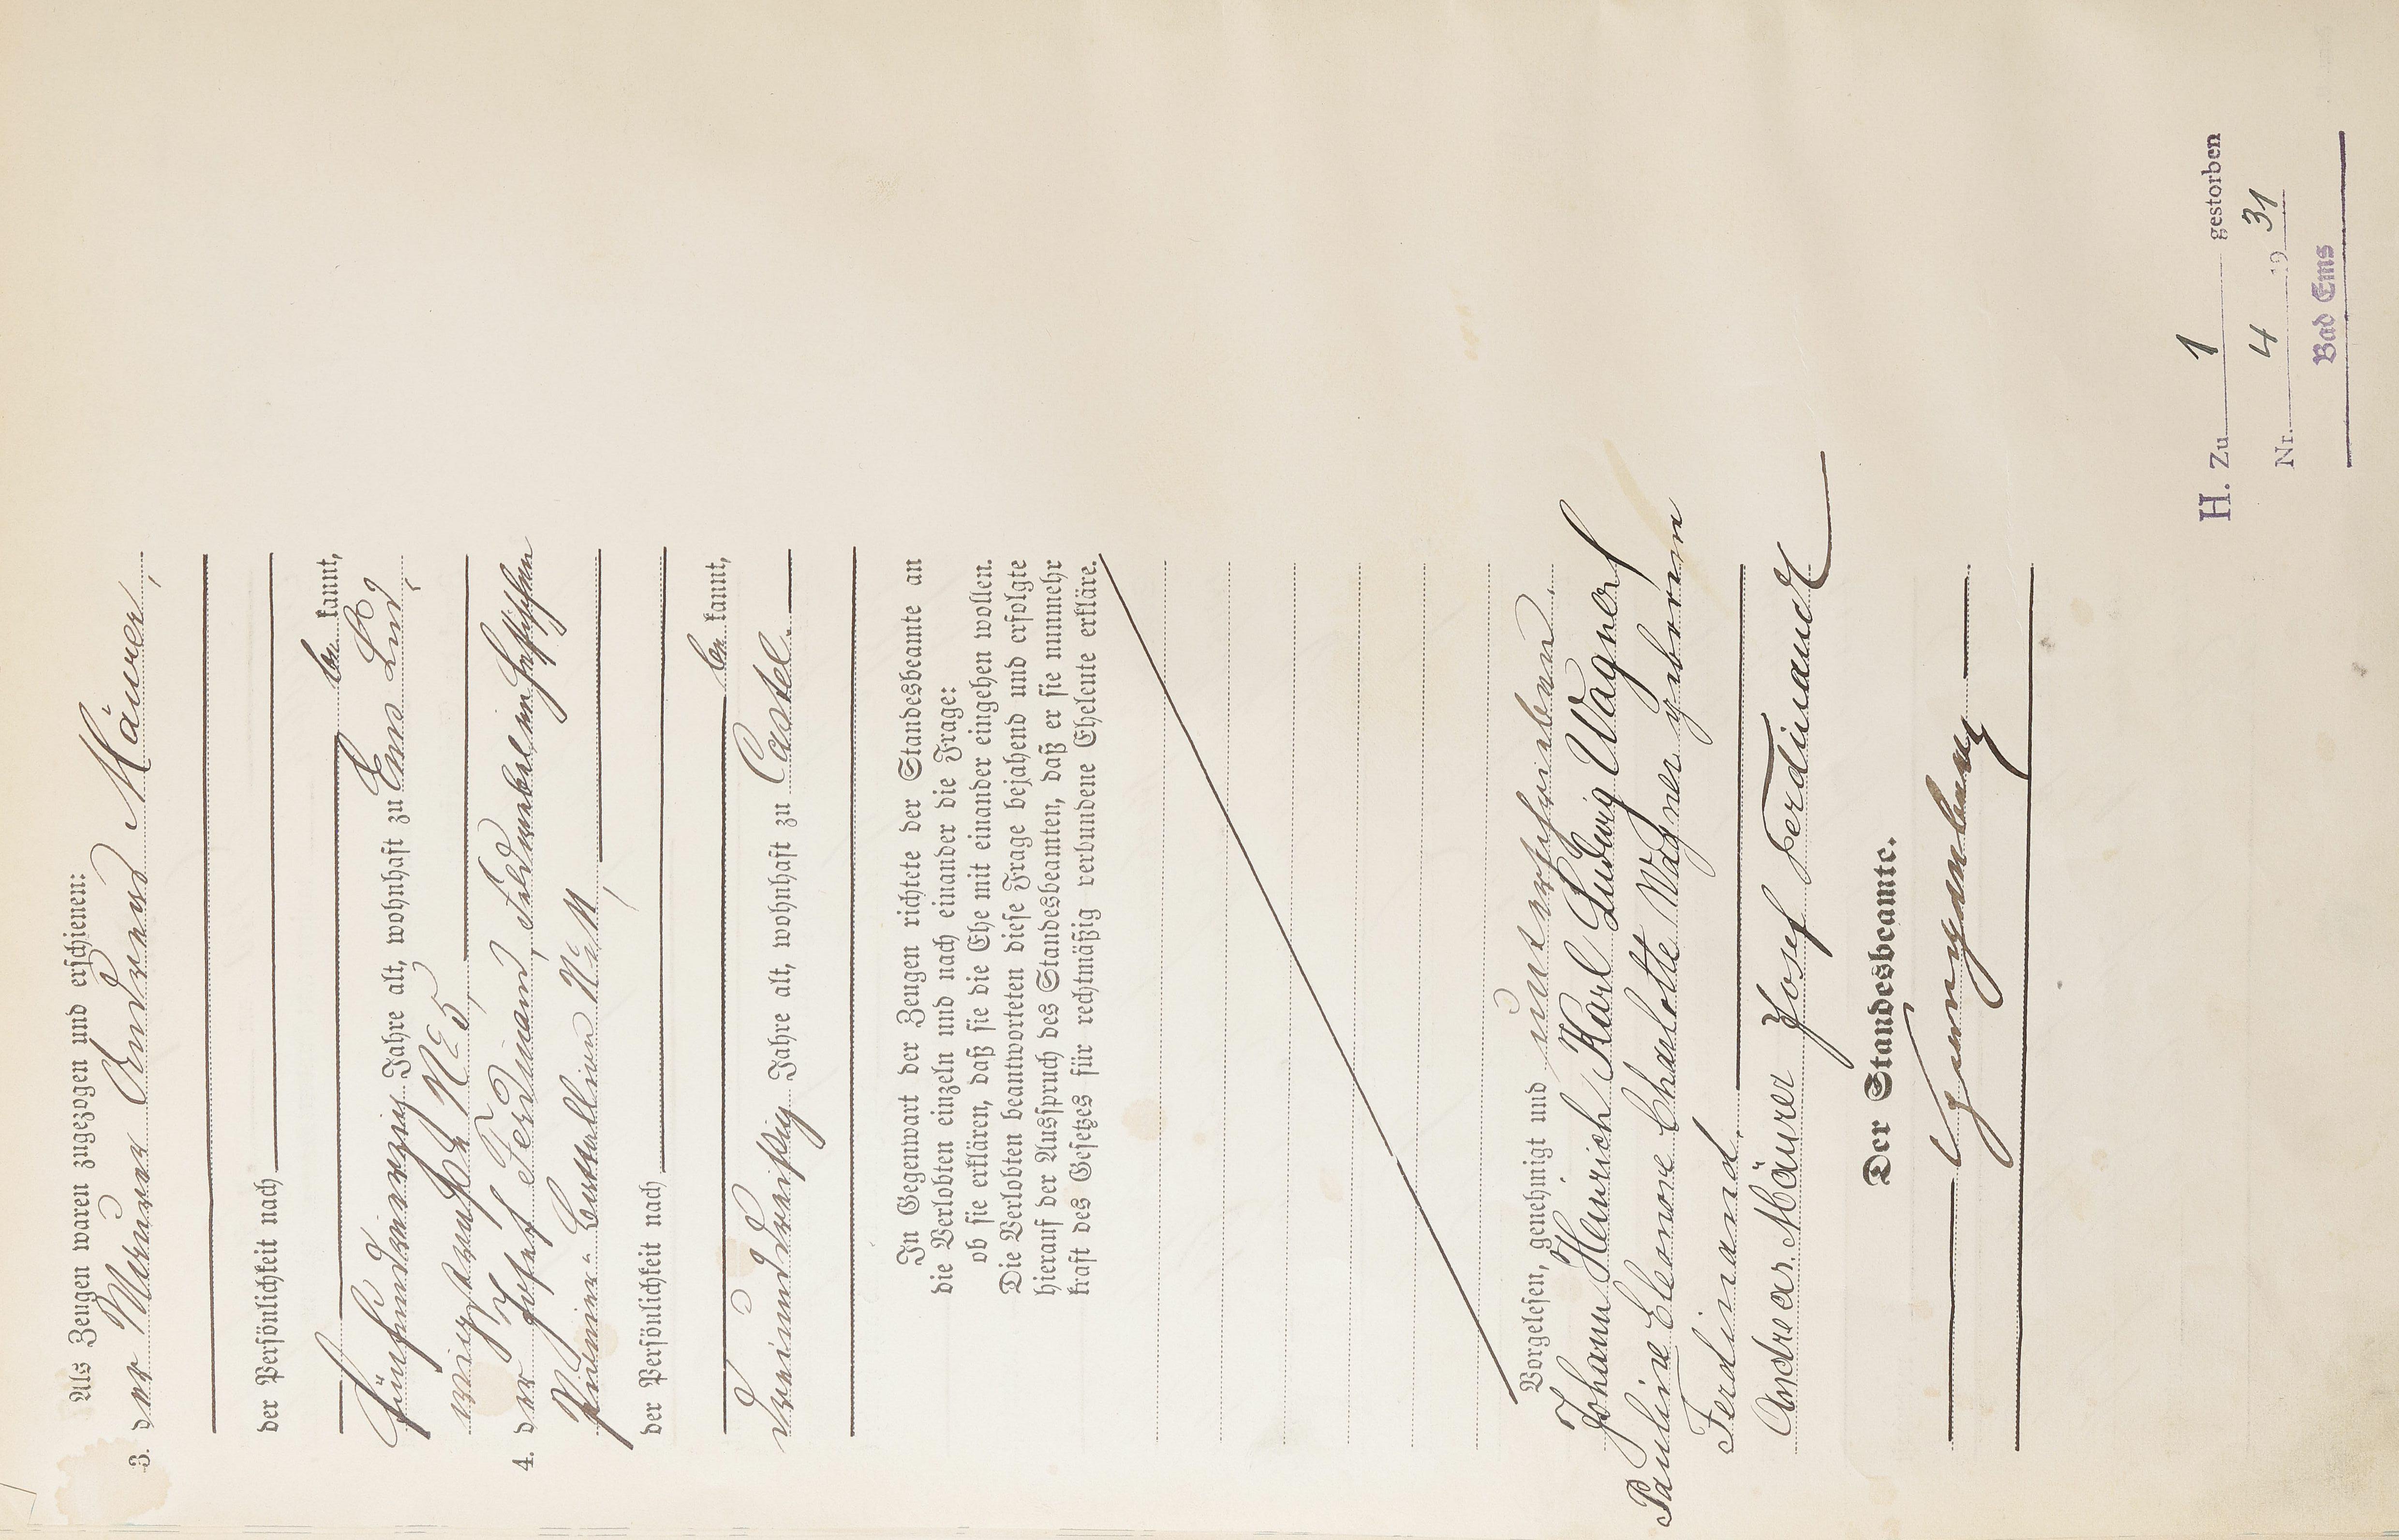 Als Zeugen waren zugezogen und erschienen:
3. der Maurer Andreas Mäurer,
der Persönlichkeit nach
be kannt,
fünfundvierzig Jahre alt, wohnhaft zu Ems
No 5,
4. der Josef Ferdinand, Feldwebel im Hessischen
Pionier-Bataillon No 11,
der Persönlichkeit nach
be kannt,
dreiunddreißig Jahre alt, wohnhaft zu Castel.
In Gegenwart der Zeugen richtete der Standesbeamte an
die Verlobten einzeln und nach einander die Frage:
ob sie erklären, daß sie die Ehe mit einander eingehen wollen.
Die Verlobten beantworteten diese Frage bejahend und erfolgte
hierauf der Ausspruch des Standesbeamten, daß er sie nunmehr
kraft des Gesetzes für rechtmäßig verbundene Eheleute erkläre.
Vorgelesen, genehmigt und unterschrieben.
Johann Heinrich Karl Ludwig Wagner
Pauline Eleonore Charlotte Wagner geborene
Ferdinand.
Andreas Mäurer Josef Ferdinand
Der Standesbeamte.
H. Zu 1 gestorben
Nr. 4 19 31
Bad Ems